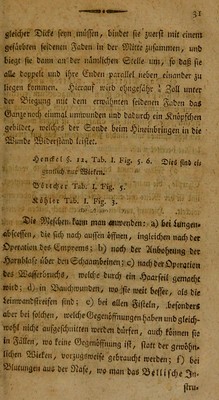 31
gleicher Dicke seyn müssen, bindet sie zuerst mit einem
gefärbten seidenen Faden in der Mitte zusammen, und
biegt sie dann an der nämlichen Stelle um, so daß sie
alle doppelt und ihre Enden parallel neben einander zu
liegen kommen. Hierauf wird ohngefähr 1 Zoll unter
der Biegung mit dem erwähnten seidenen Faden das
Ganze noch einmal umwunden und dadurch ein Knöpfchen
gebildet, welches der Sonde beim Hineinbringen in die
Wunde Widerstand leistet.
Henckel S. 12, Tab. I. Fig. 5. 6. Dies sind ei-
gentlich nur Wieken.
Böttcher Tab. I. Fig. 5.
Köhler Tab. I. Fig. 3.
Die Meschen kann man anwenden: a) bei Lungen-
abscessen, die sich nach aussen öffnen, ingleichen nach der
Operation des Empyems; b) nach der Anbohrung der
Harnblase über den Schaambeinen; c) nach der Operation
des Wasserbruchs, welche durch ein Haarseil gemacht
wird; d) in Bauchwunden, wo sie weit besser, als die
leinwandstreifen sind; e) bei allen Fisteln, besonders
aber bei solchen, welche Gegenöffnungen haben und gleich-
wohl nicht aufgeschnitten werden dürfen, auch können sie
in Fällen, wo keine Gegenöffnung ist, statt der gewöhn-
lichen Wieken, vorzugsweise gebraucht werden; f) bei
Blutungen aus der Nase, wo man das Bellische In-
stru-